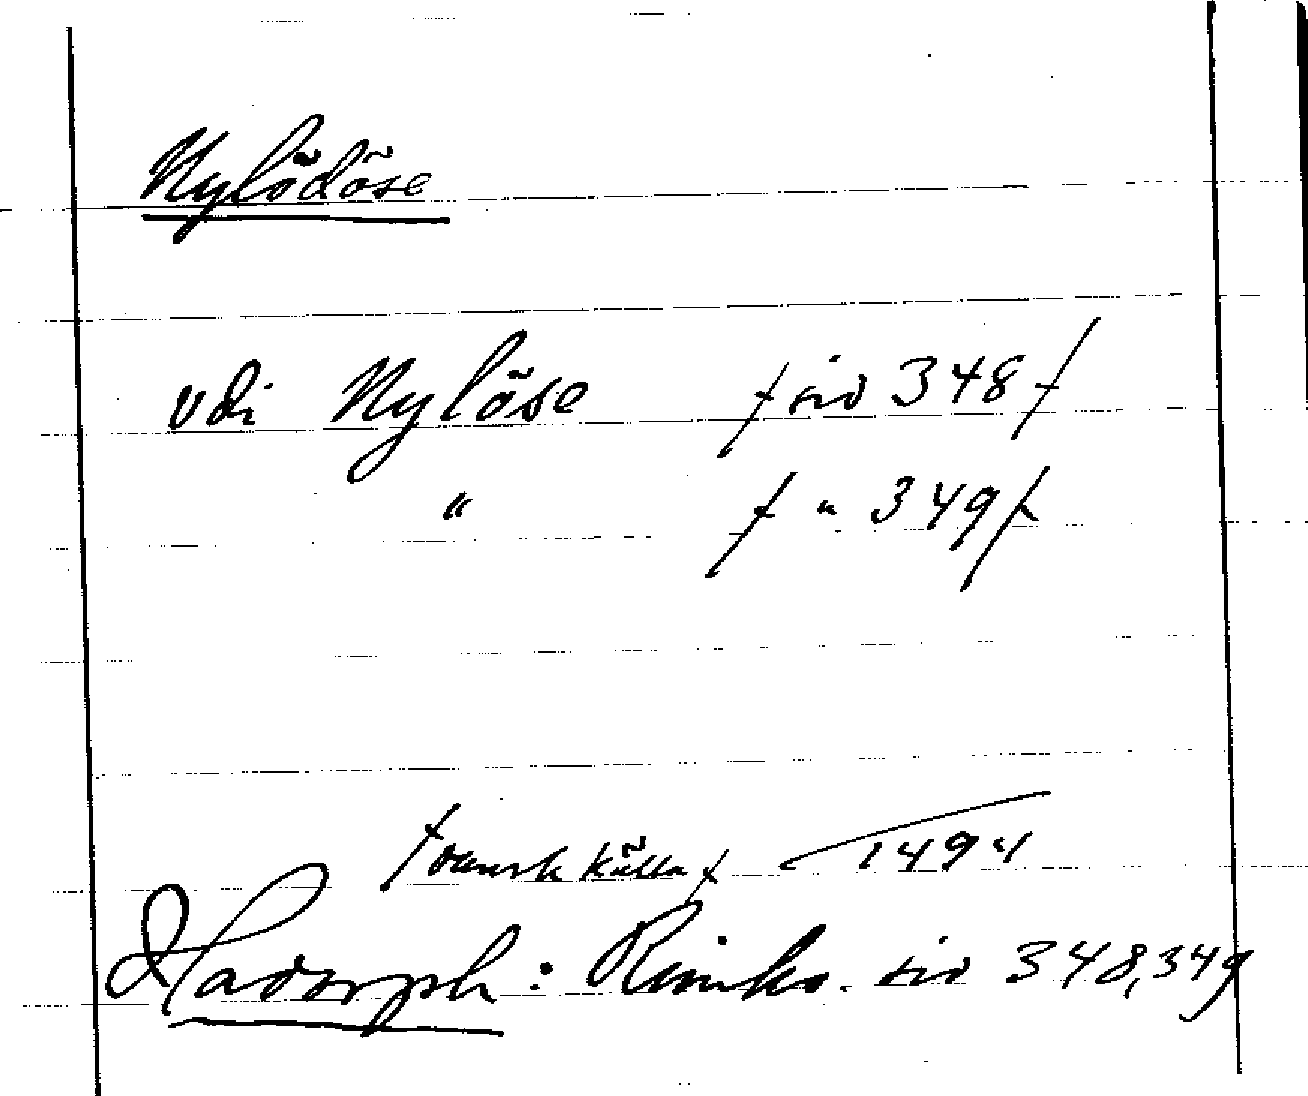 Nylödöse
vdi Nylöse / sid 348 /
" / " 349 /
/ dansk källa / 1494
Hadorph: Rimkr. sid 348, 349